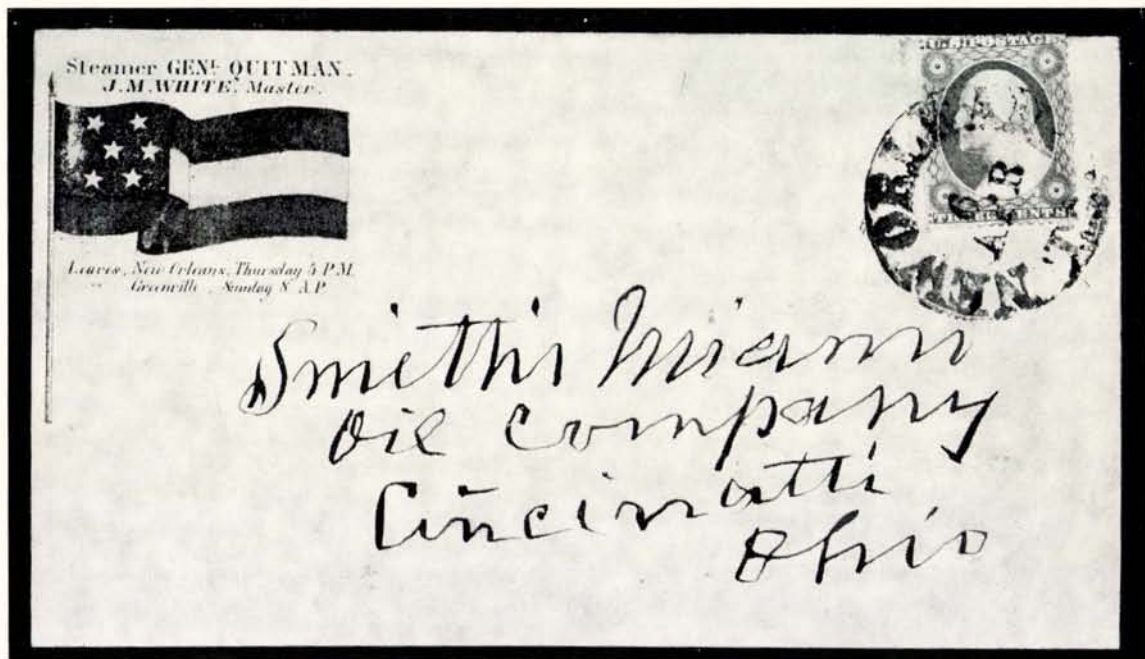 Steamer GENL QUITMAN.
J.M. WHITE, Master.
Leaves, New Orleans, Thursday 5 P.M.
" Greenville, Sunday 8 A.P.
U.S. POSTAGE
THREE CENTS
NEW ORLE
6
APR
Smith's Miami
Oil Company
Cincinatti
Ohio